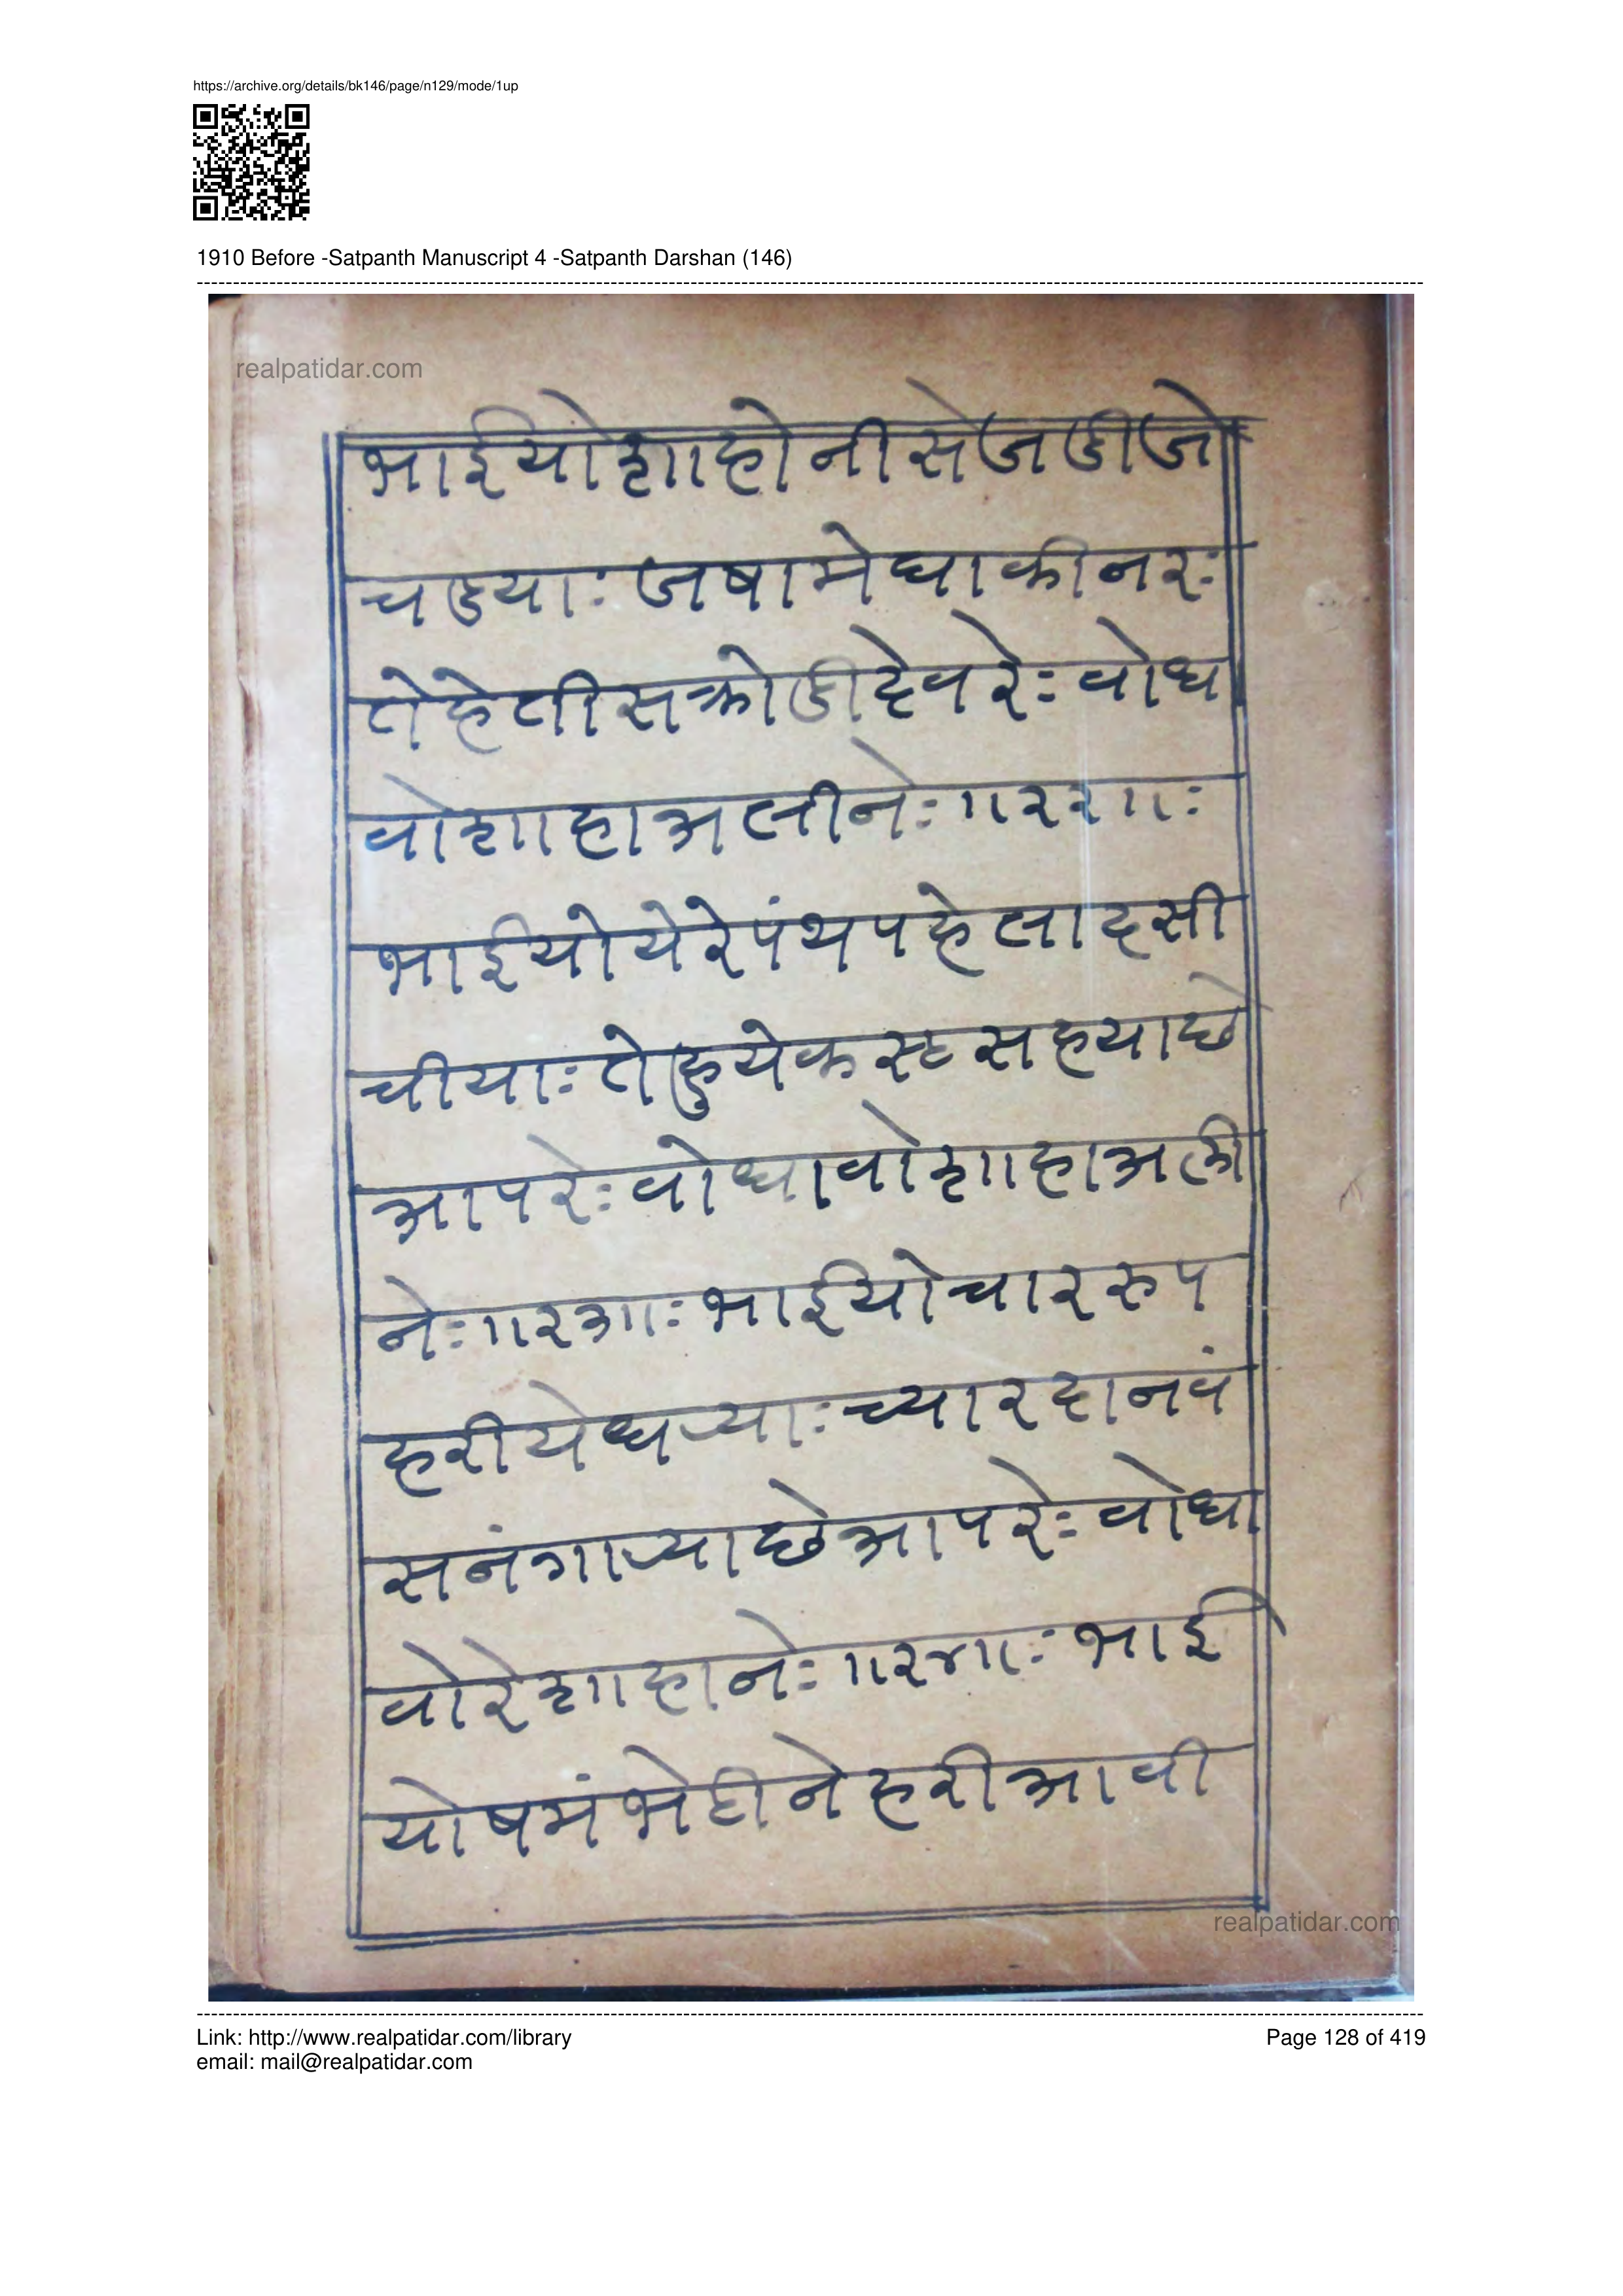 https://archive.org/details/bk146/page/n129/mode/1up
1910 Before -Satpanth Manuscript 4 -Satpanth Darshan (146)
realpatidar.com
भाईयोशाहोनीसेजडीजो
चडयाः जषामेघाकीनरः
तेहेतीसक्रोडीदेवरेः वोध
वोशाहाअलीनेः॥२२॥ः
भाईयोयेरेपंथपहेलादसी
चीयाः तेहुयेकस्टसहयाछे
आपरेः वोधावोशाहाअली
नेः॥२३॥ः भाईयोचाररुप
हरीयेधऱ्याः च्यारदानवं
सनंगाऱ्याछेआपरेः वोधा
वोरेशाहानेः॥२४॥ः भाई
योषमंभेदीनेहरीआवी
realpatidar.com
Link: http://www.realpatidar.com/library
Page 128 of 419
email: mail@realpatidar.com